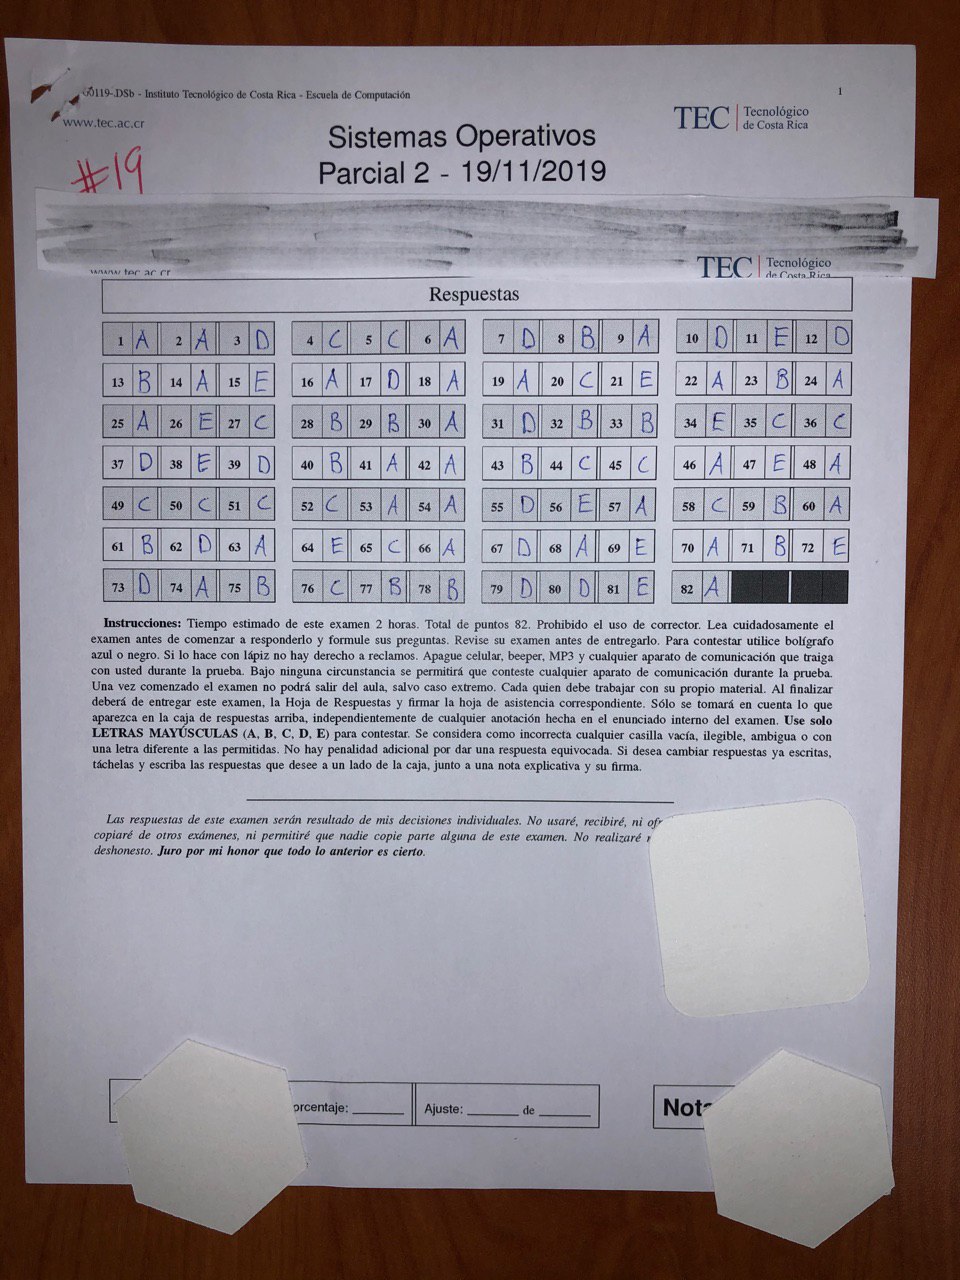 60119-.DSb - Instituto Tecnológico de Costa Rica - Escuela de Computación 1
www.tec.ac.cr
TEC Tecnológico de Costa Rica
Sistemas Operativos
Parcial 2 - 19/11/2019
#19
www.tec.ac.cr
TEC Tecnológico de Costa Rica
Respuestas
1 A 2 A 3 D 4 C 5 C 6 A 7 D 8 B 9 A 10 D 11 E 12 D
13 B 14 A 15 E 16 A 17 D 18 A 19 A 20 C 21 E 22 A 23 B 24 A
25 A 26 E 27 C 28 B 29 B 30 A 31 D 32 B 33 B 34 E 35 C 36 C
37 D 38 E 39 D 40 B 41 A 42 A 43 B 44 C 45 C 46 A 47 E 48 A
49 C 50 C 51 C 52 C 53 A 54 A 55 D 56 E 57 A 58 C 59 B 60 A
61 B 62 D 63 A 64 E 65 C 66 A 67 D 68 A 69 E 70 A 71 B 72 E
73 D 74 A 75 B 76 C 77 B 78 B 79 D 80 D 81 E 82 A
Instrucciones: Tiempo estimado de este examen 2 horas. Total de puntos 82. Prohibido el uso de corrector. Lea cuidadosamente el
examen antes de comenzar a responderlo y formule sus preguntas. Revise su examen antes de entregarlo. Para contestar utilice bolígrafo
azul o negro. Si lo hace con lápiz no hay derecho a reclamos. Apague celular, beeper, MP3 y cualquier aparato de comunicación que traiga
con usted durante la prueba. Bajo ninguna circunstancia se permitirá que conteste cualquier aparato de comunicación durante la prueba.
Una vez comenzado el examen no podrá salir del aula, salvo caso extremo. Cada quien debe trabajar con su propio material. Al finalizar
deberá de entregar este examen, la Hoja de Respuestas y firmar la hoja de asistencia correspondiente. Sólo se tomará en cuenta lo que
aparezca en la caja de respuestas arriba, independientemente de cualquier anotación hecha en el enunciado interno del examen. Use solo
LETRAS MAYÚSCULAS (A, B, C, D, E) para contestar. Se considera como incorrecta cualquier casilla vacía, ilegible, ambigua o con
una letra diferente a las permitidas. No hay penalidad adicional por dar una respuesta equivocada. Si desea cambiar respuestas ya escritas,
táchelas y escriba las respuestas que desee a un lado de la caja, junto a una nota explicativa y su firma.
Las respuestas de este examen serán resultado de mis decisiones individuales. No usaré, recibiré, ni
copiaré de otros exámenes, ni permitiré que nadie copie parte alguna de este examen. No realizaré
deshonesto. Juro por mi honor que todo lo anterior es cierto.
orcentaje: ______ Ajuste: ______ de ______ Nota